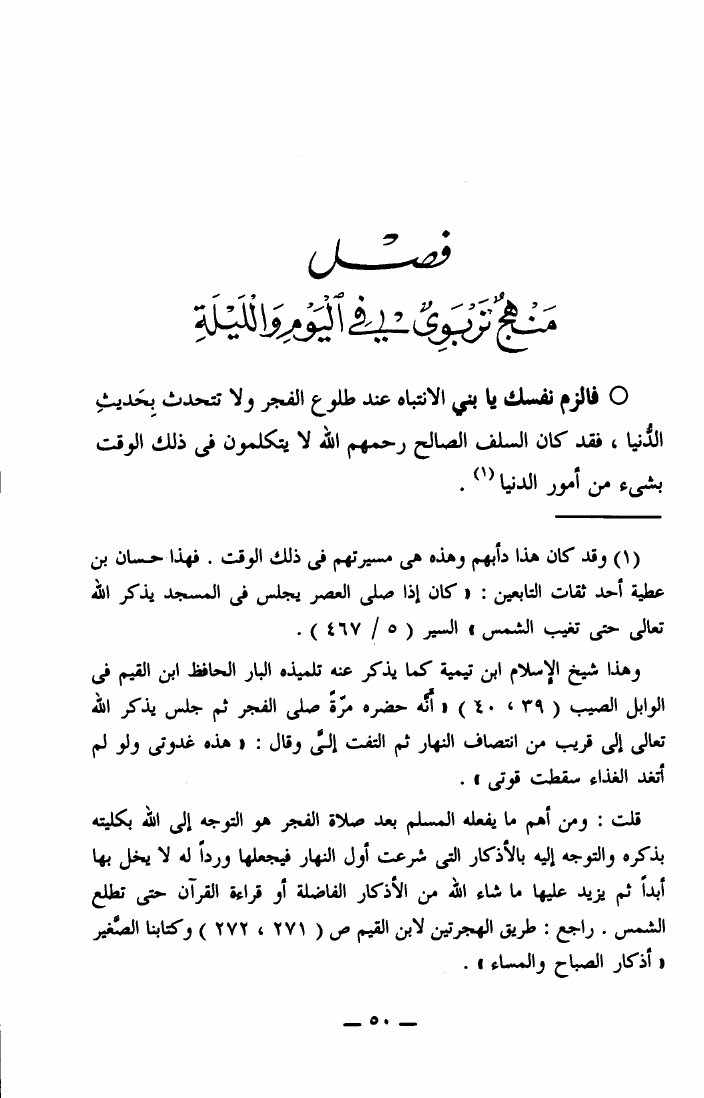 فصل
مَنْهجٌ تَرْبَوِيٌّ فِي اليَوْمِ وَاللَّيْلَةِ
○ فالزم نفسك يا بني الانتباه عند طلوع الفجر ولا تتحدث بِحَديثِ
الدُّنيا ، فقد كان السلف الصالح رحمهم الله لا يتكلمون فى ذلك الوقت
بشىء من أمور الدنيا (١) .
(١) وقد كان هذا دأبهم وهذه هى مسيرتهم فى ذلك الوقت . فهذا حسان بن
عطية أحد ثقات التابعين : « كان إذا صلى العصر يجلس فى المسجد يذكر الله
تعالى حتى تغيب الشمس » السير ( ٥ / ٤٦٧ ) .
وهذا شيخ الإسلام ابن تيمية كما يذكر عنه تلميذه البار الحافظ ابن القيم فى
الوابل الصيب ( ٣٩ ، ٤٠ ) « أنَّه حضره مرّةً صلى الفجر ثم جلس يذكر الله
تعالى إلى قريب من انتصاف النهار ثم التفت إلىَّ وقال : « هذه غدوتى ولو لم
أتغد الغذاء سقطت قوتى » .
قلت : ومن أهم ما يفعله المسلم بعد صلاة الفجر هو التوجه إلى الله بكليته
بذكره والتوجه إليه بالأذكار التى شرعت أول النهار فيجعلها ورداً له لا يخل بها
أبداً ثم يزيد عليها ما شاء الله من الأذكار الفاضلة أو قراءة القرآن حتى تطلع
الشمس . راجع : طريق الهجرتين لابن القيم ص ( ٢٧١ ، ٢٧٢ ) وكتابنا الصَّغير
« أذكار الصباح والمساء » .
— ٥٠ —